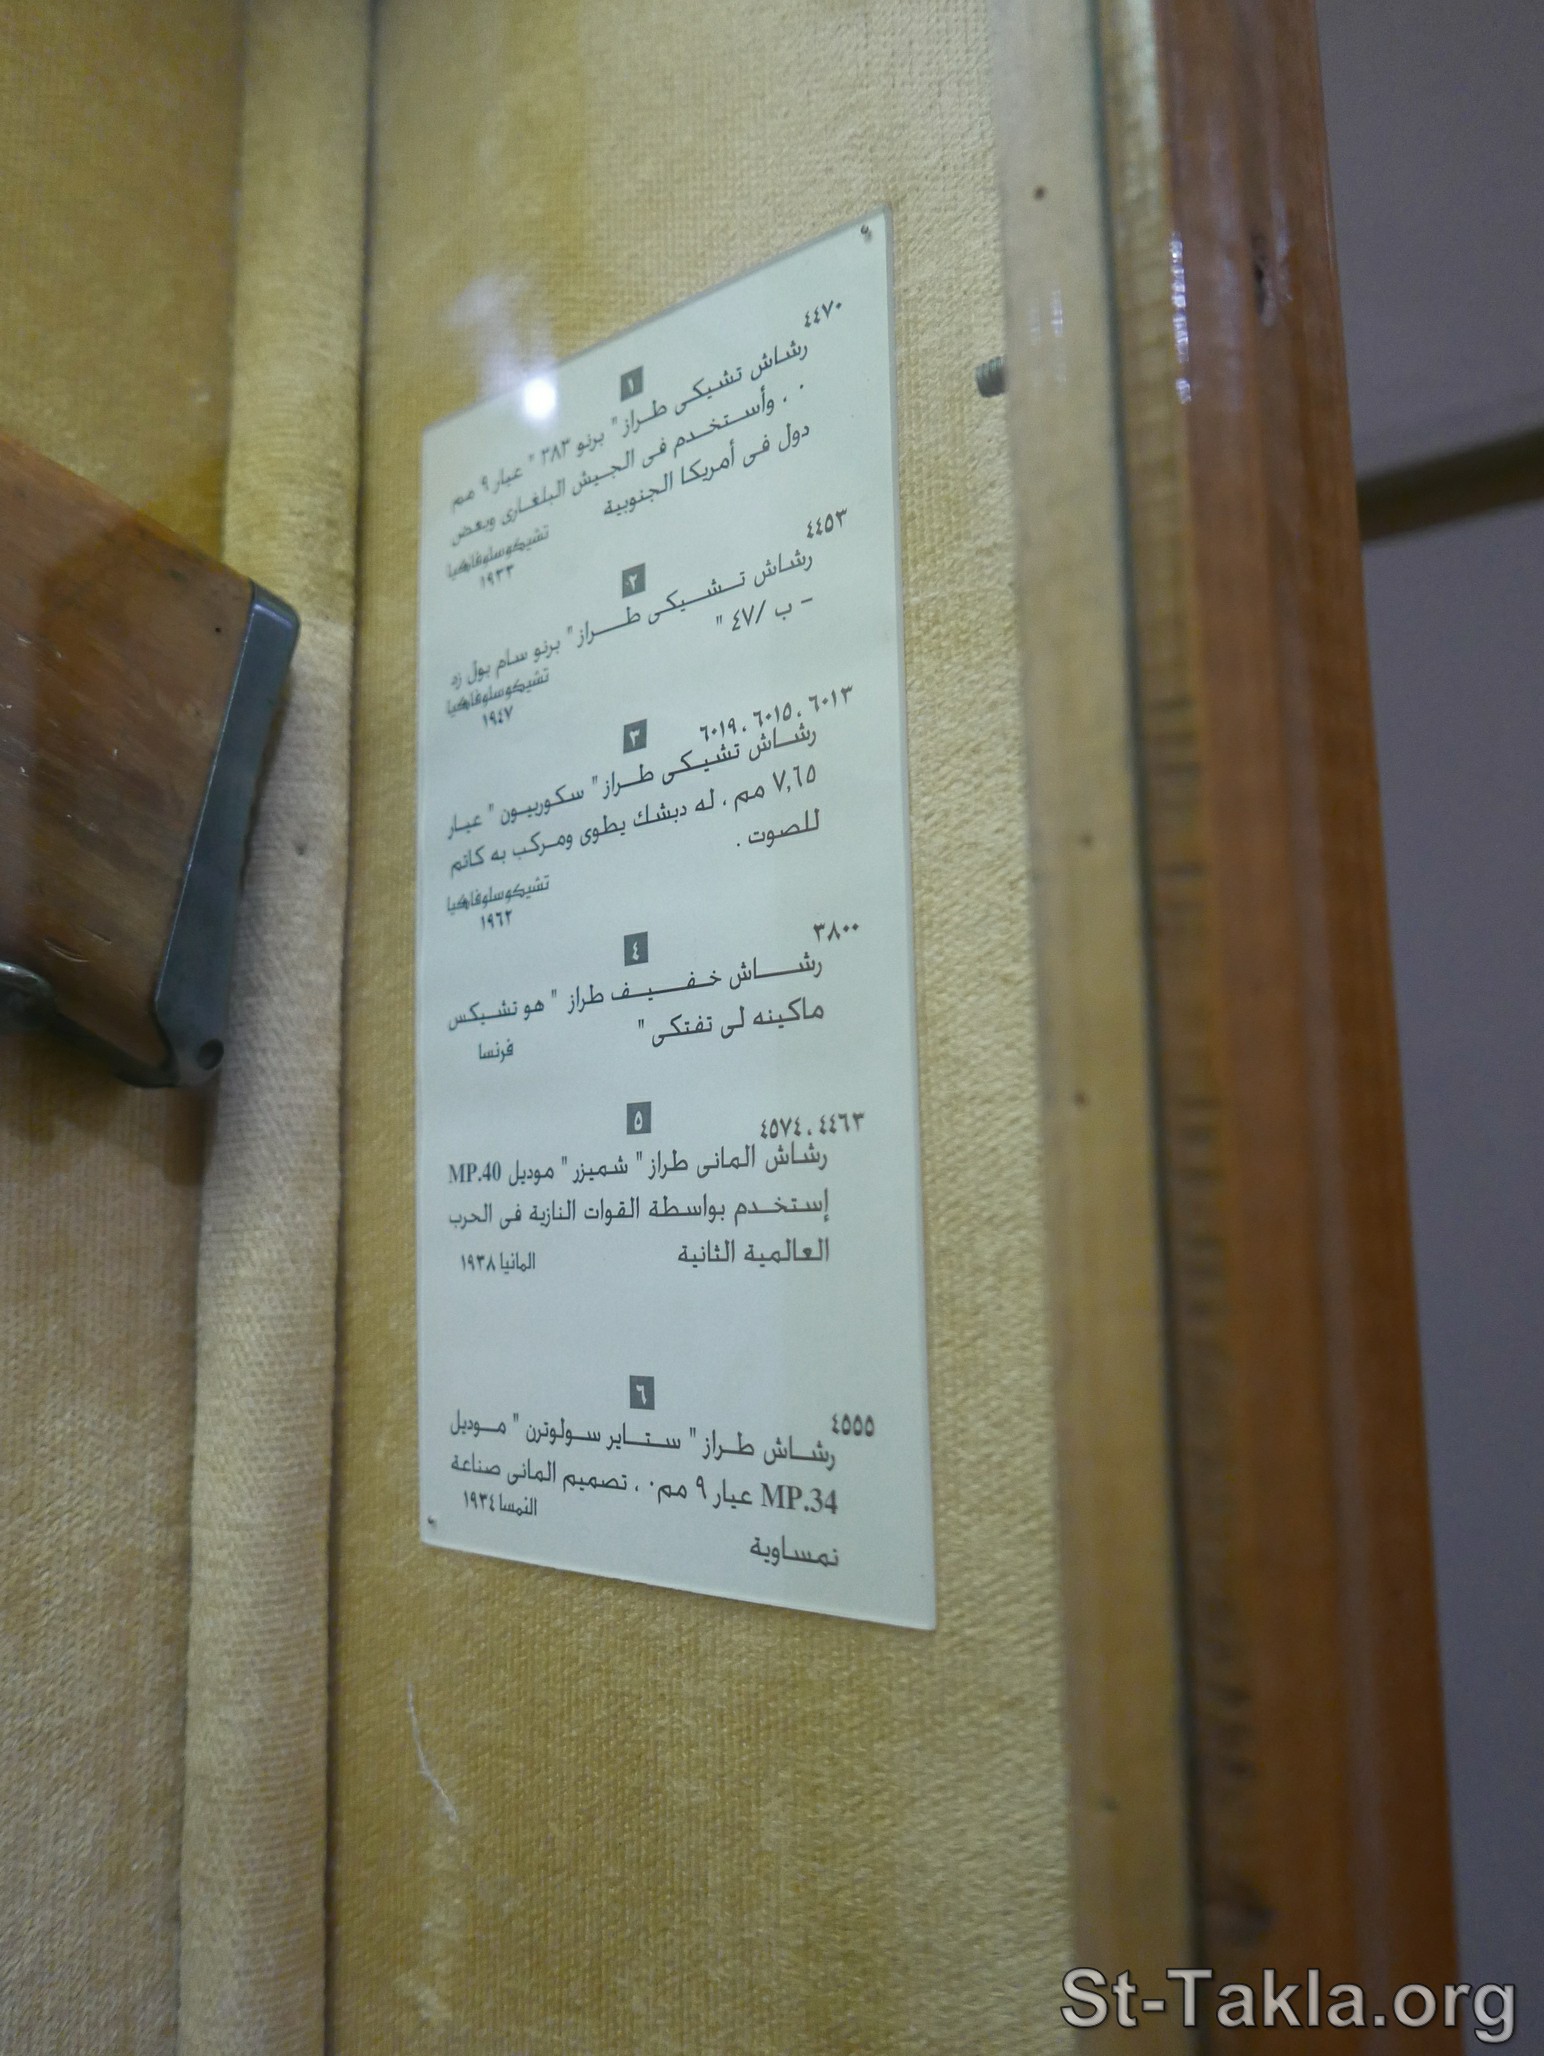 ٤٤٧٠
١
رشاش تشيكى طراز " برنو ٣٨٣ " عيار ٩ مم
. . وأستخدم فى الجيش البلغارى وبعض
دول فى أمريكا الجنوبية
تشيكوسلوفاكيا
١٩٣٣
٤٤٥٣
٢
رشاش تشيكى طراز " برنو سام بول زد
- ب /٤٧ "
تشيكوسلوفاكيا
١٩٤٧
٦٠١٣ ، ٦٠١٥ ، ٦٠١٩
٣
رشاش تشيكى طراز " سكوربيون " عيار
٧,٦٥ مم ، له دبشك يطوى ومركب به كاتم
للصوت .
تشيكوسلوفاكيا
١٩٦٢
٣٨٠٠
٤
رشاش خفيف طراز " هو تشيكس
ماكينه لى تفتكى "
فرنسا
٥
٤٤٦٣ ، ٤٥٧٤
رشاش المانى طراز " شميزر " موديل MP.40
إستخدم بواسطة القوات النازية فى الحرب
العالمية الثانية
المانيا ١٩٣٨
٦
٤٥٥٥
رشاش طراز " ستاير سولوترن " موديل
MP.34 عيار ٩ مم٠ ، تصميم المانى صناعة
نمساوية
النمسا ١٩٣٤
St-Takla.org